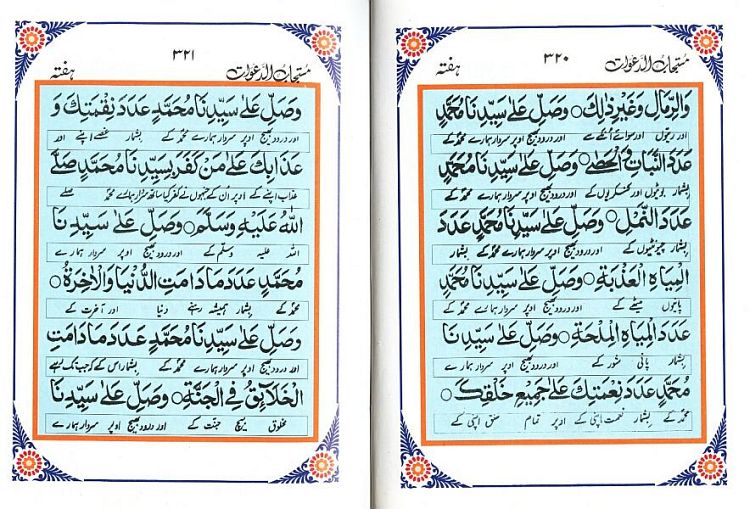 مستجاب الدعوات ۳۲۰ ہفتہ
وَالرِّمَالِ وَغَيْرِ ذٰلِكَ ○ وَصَلِّ عَلٰى سَيِّدِنَا مُحَمَّدٍ
اور ریتوں اور سوائے انکے سے اور درود بھیج اوپر سردار ہمارے محمدؐ کے
عَدَدَ النَّبَاتِ وَالْحَصٰى ○ وَصَلِّ عَلٰى سَيِّدِنَا مُحَمَّدٍ
بشمار بوٹیوں اور کنکریوں کے اور درود بھیج اوپر سردار ہمارے محمدؐ کے
عَدَدَ النَّمْلِ ○ وَصَلِّ عَلٰى سَيِّدِنَا مُحَمَّدٍ عَدَدَ
بشمار چیونٹیوں کے اور درود بھیج اوپر سردار ہمارے محمدؐ کے بشمار
الْمِيَاهِ الْعَذْبَةِ ○ وَصَلِّ عَلٰى سَيِّدِنَا مُحَمَّدٍ
پانیوں میٹھے کے اور درود بھیج اوپر سردار ہمارے محمدؐ کے
عَدَدَ الْمِيَاهِ الْمِلْحَةِ ○ وَصَلِّ عَلٰى سَيِّدِنَا
بشمار پانی شور کے اور درود بھیج اوپر سردار ہمارے
مُحَمَّدٍ عَدَدَ نِعْمَتِكَ عَلٰى جَمِيْعِ خَلْقِكَ ○
محمدؐ کے بشمار نعمت اپنی کے اوپر تمام خلق اپنی کے
مستجاب الدعوات ۳۲۱ ہفتہ
وَصَلِّ عَلٰى سَيِّدِنَا مُحَمَّدٍ عَدَدَ نِقْمَتِكَ وَ
اور درود بھیج اوپر سردار ہمارے محمدؐ کے بشمار غصے اپنے اور
عَذَابِكَ عَلٰى مَنْ كَفَرَ بِسَيِّدِنَا مُحَمَّدٍ صَلَّى
عذاب اپنے کے اوپر ان کے جنہوں نے کفر کیا ساتھ سردار ہمارے محمدؐ صلے
اللهُ عَلَيْهِ وَسَلَّمَ ○ وَصَلِّ عَلٰى سَيِّدِنَا
اللہ علیہ وسلم کے اور درود بھیج اوپر سردار ہمارے
مُحَمَّدٍ عَدَدَ مَا دَامَتِ الدُّنْيَا وَالْاٰخِرَةُ ○
محمدؐ کے بشمار ہمیشہ رہنے دنیا اور آخرت کے
وَصَلِّ عَلٰى سَيِّدِنَا مُحَمَّدٍ عَدَدَ مَا دَامَتِ
اور درود بھیج اوپر سردار ہمارے محمدؐ کے بشمار اس کے کہ جب تک رہے
الْخَلَآئِقُ فِي الْجَنَّةِ ○ وَصَلِّ عَلٰى سَيِّدِنَا
مخلوق بیچ جنت کے اور درود بھیج اوپر سردار ہمارے